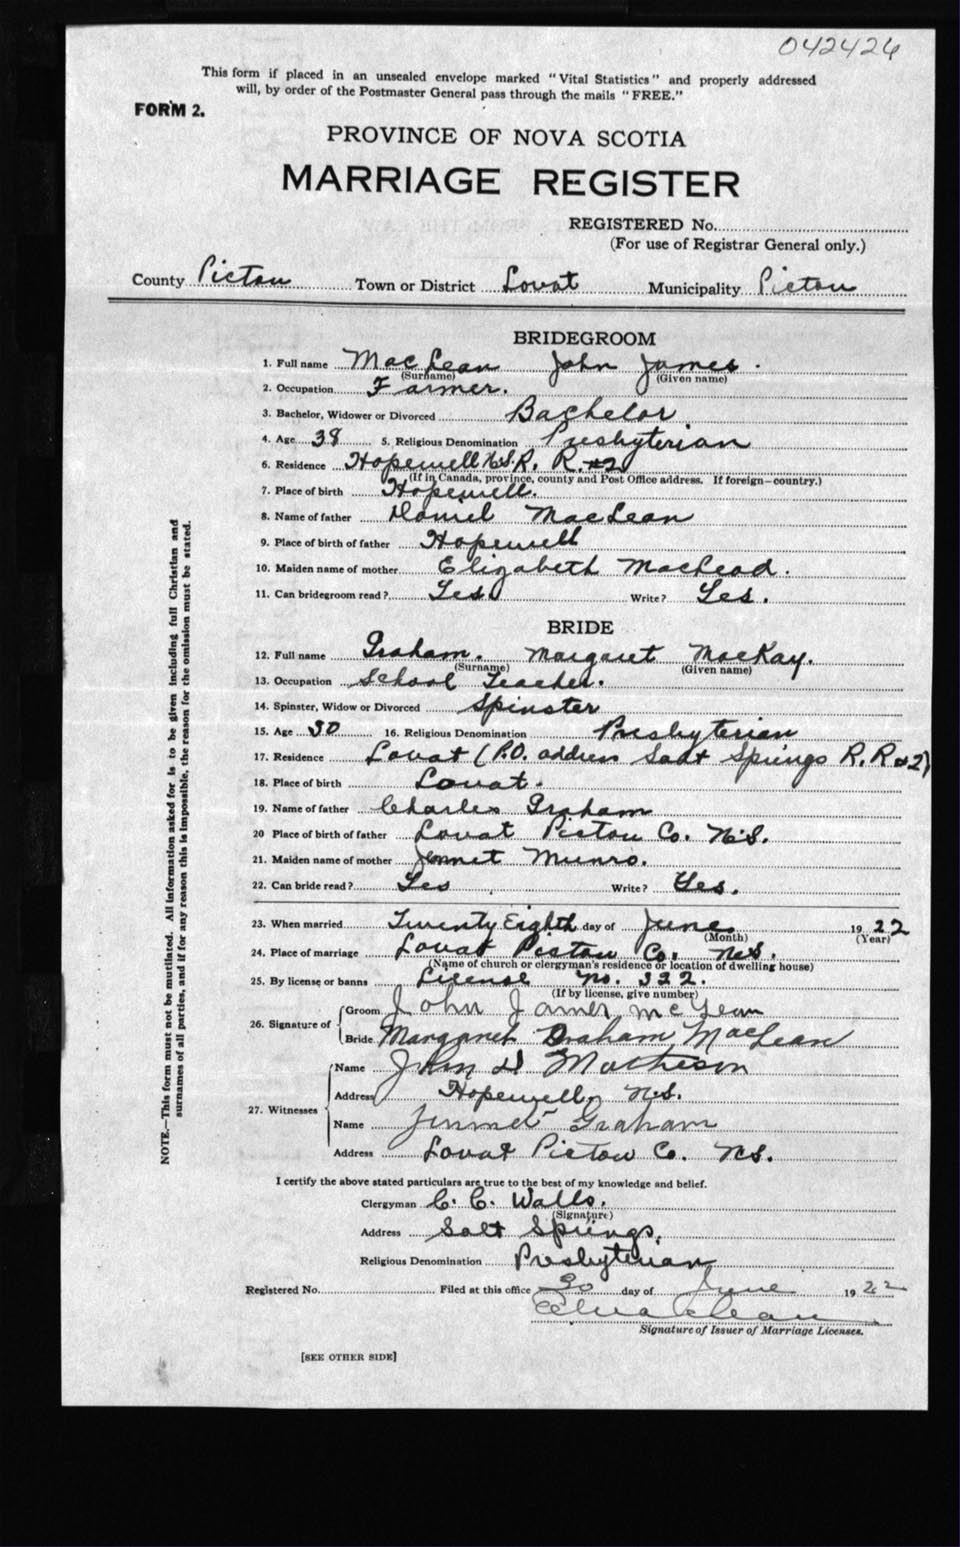 042426
This form if placed in an unsealed envelope marked "Vital Statistics" and properly addressed
will, by order of the Postmaster General pass through the mails "FREE."
FORM 2.
PROVINCE OF NOVA SCOTIA
MARRIAGE REGISTER
REGISTERED No.
(For use of Registrar General only.)
County Pictou Town or District Lovat Municipality Pictou
BRIDEGROOM
1. Full name MacLean John James.
(Surname) (Given name)
2. Occupation Farmer.
3. Bachelor, Widower or Divorced Bachelor
4. Age 38 5. Religious Denomination Presbyterian
6. Residence Hopewell N.S. R. R. #2
(If in Canada, province, county and Post Office address. If foreign—country.)
7. Place of birth Hopewell.
8. Name of father Daniel MacLean
9. Place of birth of father Hopewell
10. Maiden name of mother Elizabeth MacLeod.
11. Can bridegroom read? Yes Write? Yes.
BRIDE
12. Full name Graham. Margaret MacKay.
(Surname) (Given name)
13. Occupation School Teacher.
14. Spinster, Widow or Divorced Spinster
15. Age 30 16. Religious Denomination Presbyterian
17. Residence Lovat (P.O. address Salt Springs R. R #2)
18. Place of birth Lovat.
19. Name of father Charles Graham
20 Place of birth of father Lovat Pictou Co. N.S.
21. Maiden name of mother Jennet Munro.
22. Can bride read? Yes Write? Yes.
23. When married Twenty Eighth day of June 1922
(Month) (Year)
24. Place of marriage Lovat Pictou Co. N.S.
(Name of church or clergyman's residence or location of dwelling house)
25. By license or banns License No. 322.
(If by license, give number)
26. Signature of Groom John James McLean
Bride Margaret Graham MacLean
27. Witnesses Name John D Matheson
Address Hopewell, N.S.
Name Jennet Graham
Address Lovat Pictou Co. N.S.
I certify the above stated particulars are true to the best of my knowledge and belief.
Clergyman C. C. Walls.
(Signature)
Address Salt Springs.
Religious Denomination Presbyterian
Registered No. Filed at this office 30 day of June 1922
Signature of Issuer of Marriage Licenses.
[SEE OTHER SIDE]
NOTE.—This form must not be mutilated. All information asked for is to be given including full Christian and
surnames of all parties, and if for any reason this is impossible, the reason for the omission must be stated.